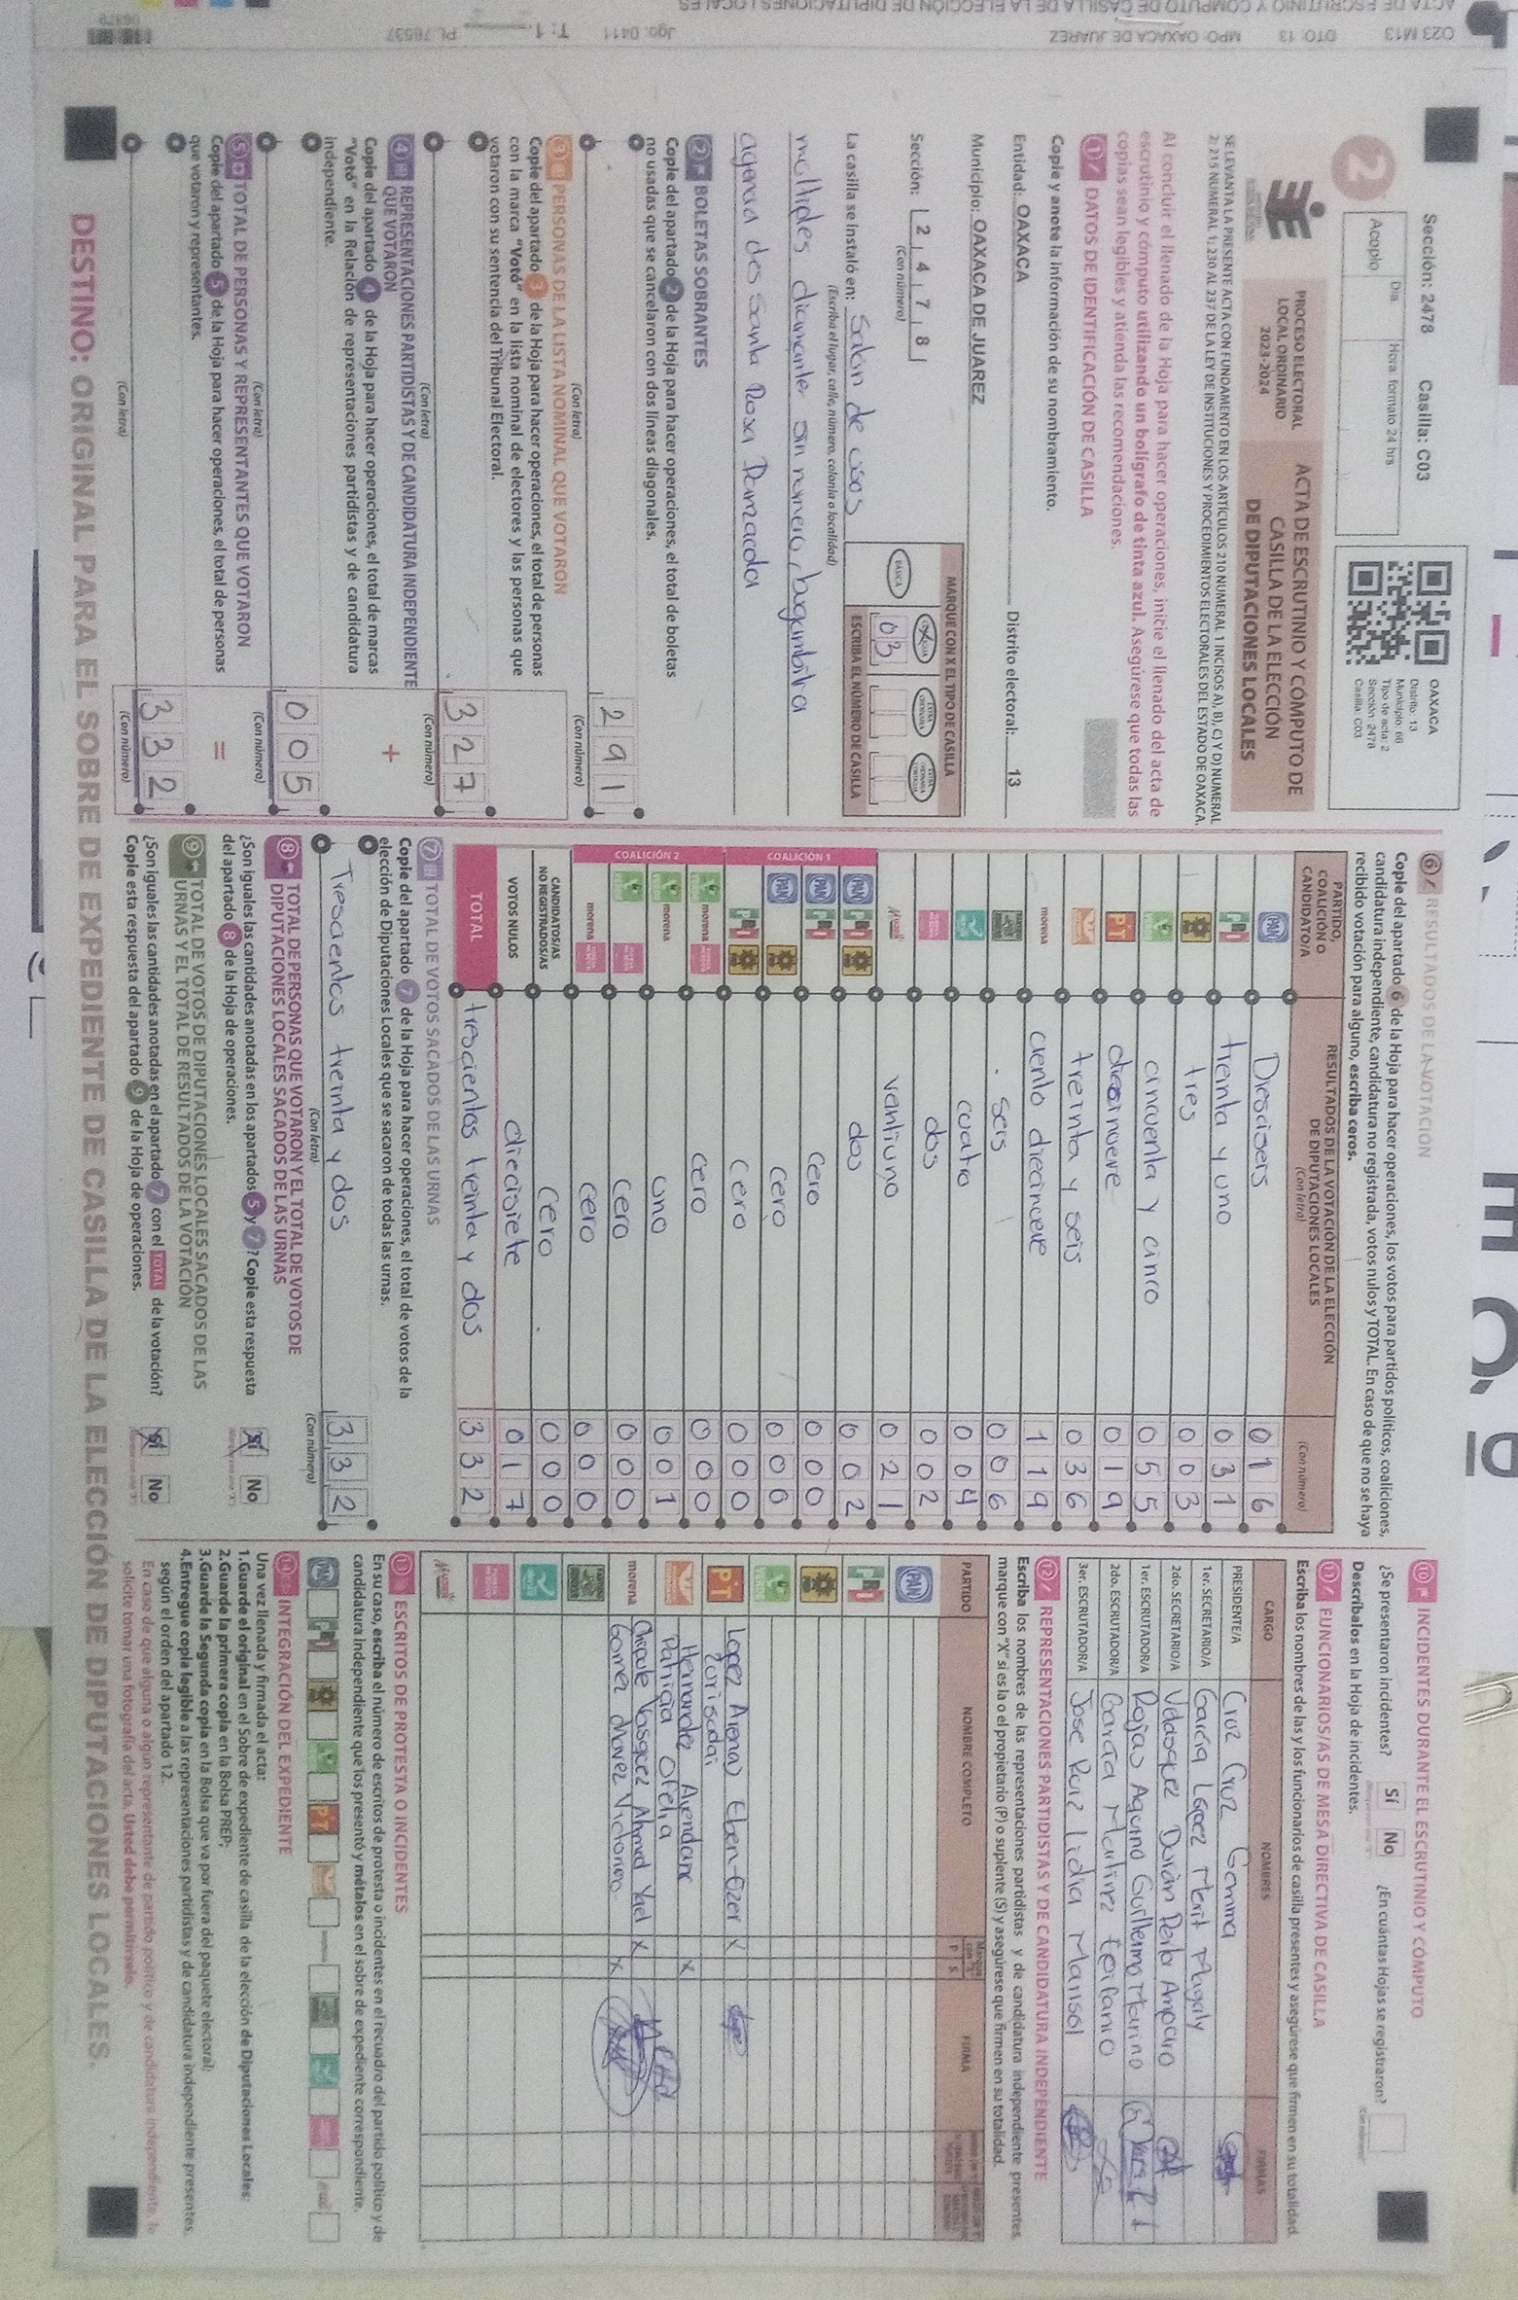 Sección: 2478 Casilla: C03
2
Acopio
Día
Hora: formato 24 hrs
OAXACA
Distrito: 13
Municipio: 66
Tipo de acta: 2
Sección: 2478
Casilla: C03
PROCESO ELECTORAL
LOCAL ORDINARIO
2023-2024
ACTA DE ESCRUTINIO Y CÓMPUTO DE
CASILLA DE LA ELECCIÓN
DE DIPUTACIONES LOCALES
SE LEVANTA LA PRESENTE ACTA CON FUNDAMENTO EN LOS ARTÍCULOS 210 NUMERAL 1 INCISOS A), B), C) Y D) NUMERAL
2; 215 NUMERAL 1; 230 AL 237 DE LA LEY DE INSTITUCIONES Y PROCEDIMIENTOS ELECTORALES DEL ESTADO DE OAXACA.
Al concluir el llenado de la Hoja para hacer operaciones, inicie el llenado del acta de
escrutinio y cómputo utilizando un bolígrafo de tinta azul. Asegúrese que todas las
copias sean legibles y atienda las recomendaciones.
1 DATOS DE IDENTIFICACIÓN DE CASILLA
Copie y anote la información de su nombramiento.
Entidad: OAXACA Distrito electoral: 13
Municipio: OAXACA DE JUAREZ
Sección: 2 4 7 8
(Con número)
MARQUE CON X EL TIPO DE CASILLA
BÁSICA
03
ESCRIBA EL NÚMERO DE CASILLA
La casilla se instaló en: Salon de usos
(Escriba el lugar, calle, número, colonia o localidad)
multiples diamante sin numero, bugambilia
agencia de Santa Rosa Panzacola
2 BOLETAS SOBRANTES
Copie del apartado 2 de la Hoja para hacer operaciones, el total de boletas
no usadas que se cancelaron con dos líneas diagonales.
2 9 1
(Con letra) (Con número)
3 PERSONAS DE LA LISTA NOMINAL QUE VOTARON
Copie del apartado 3 de la Hoja para hacer operaciones, el total de personas
con la marca "Votó" en la lista nominal de electores y las personas que
votaron con su sentencia del Tribunal Electoral.
3 2 7
(Con letra) (Con número)
4 REPRESENTACIONES PARTIDISTAS Y DE CANDIDATURA INDEPENDIENTE
QUE VOTARON
Copie del apartado 4 de la Hoja para hacer operaciones, el total de marcas
"Votó" en la Relación de representaciones partidistas y de candidatura
independiente.
+
0 0 5
(Con letra) (Con número)
5 TOTAL DE PERSONAS Y REPRESENTANTES QUE VOTARON
Copie del apartado 5 de la Hoja para hacer operaciones, el total de personas
que votaron y representantes.
=
3 3 2
(Con letra) (Con número)
6 RESULTADOS DE LA VOTACIÓN
Copie del apartado 6 de la Hoja para hacer operaciones, los votos para partidos políticos, coaliciones,
candidatura independiente, candidatura no registrada, votos nulos y TOTAL. En caso de que no se haya
recibido votación para alguno, escriba ceros.
PARTIDO,
COALICIÓN O
CANDIDATO/A
RESULTADOS DE LA VOTACIÓN DE LA ELECCIÓN
DE DIPUTACIONES LOCALES
(Con letra) (Con número)
PAN Dieciseis 0 1 6
PRI treinta y uno 0 3 1
PRD tres 0 0 3
cincuenta y cinco 0 5 5
PT diecinueve 0 1 9
treinta y seis 0 3 6
morena ciento diecinueve 1 1 9
seis 0 0 6
cuatro 0 0 4
dos 0 0 2
ventiuno 0 2 1
COALICIÓN 1
PAN PRI PRD dos 0 0 2
PAN PRI cero 0 0 0
PAN PRD cero 0 0 0
PRI PRD cero 0 0 0
COALICIÓN 2
morena cero 0 0 0
morena uno 0 0 1
cero 0 0 0
morena cero 0 0 0
CANDIDATOS/AS
NO REGISTRADOS/AS Cero 0 0 0
VOTOS NULOS diecisiete 0 1 7
TOTAL trescientos treinta y dos 3 3 2
7 TOTAL DE VOTOS SACADOS DE LAS URNAS
Copie del apartado 7 de la Hoja para hacer operaciones, el total de votos de la
elección de Diputaciones Locales que se sacaron de todas las urnas.
Trescientos treinta y dos 3 3 2
(Con letra) (Con número)
8 TOTAL DE PERSONAS QUE VOTARON Y EL TOTAL DE VOTOS DE
DIPUTACIONES LOCALES SACADOS DE LAS URNAS
¿Son iguales las cantidades anotadas en los apartados 5 y 7? Copie esta respuesta
del apartado 8 de la Hoja de operaciones.
Sí No
9 TOTAL DE VOTOS DE DIPUTACIONES LOCALES SACADOS DE LAS
URNAS Y EL TOTAL DE RESULTADOS DE LA VOTACIÓN
¿Son iguales las cantidades anotadas en el apartado 7 con el TOTAL de la votación?
Copie esta respuesta del apartado 9 de la Hoja de operaciones.
Sí No
10 INCIDENTES DURANTE EL ESCRUTINIO Y CÓMPUTO
¿Se presentaron incidentes? Sí No ¿En cuántas Hojas se registraron?
Descríbalos en la Hoja de incidentes.
11 FUNCIONARIOS/AS DE MESA DIRECTIVA DE CASILLA
Escriba los nombres de las y los funcionarios de casilla presentes y asegúrese que firmen en su totalidad.
CARGO NOMBRES FIRMAS
PRESIDENTE/A Cruz Cruz Gemma
1er. SECRETARIO/A Garcia López Merit Magaly
2do. SECRETARIO/A Vdasquez Durán Perla Amparo
1er. ESCRUTADOR/A Rojas Aquino Guillermo Marino
2do. ESCRUTADOR/A Garcia Martinez Epifanio
3er. ESCRUTADOR/A Jose Ruiz Lidia Marisol
12 REPRESENTACIONES PARTIDISTAS Y DE CANDIDATURA INDEPENDIENTE
Escriba los nombres de las representaciones partidistas y de candidatura independiente presentes,
marque con "X" si es la o el propietario (P) o suplente (S) y asegúrese que firmen en su totalidad.
PARTIDO NOMBRE COMPLETO P S FIRMA
PAN
PRI
PRD
PT Lopez Arenas Eben-Ezer X
Zorisadai
Hernandez Avendaño
Patricia Ofelia X
morena Vasquez Ahmed Yael X
Gomez chavez Victorino X
13 ESCRITOS DE PROTESTA O INCIDENTES
En su caso, escriba el número de escritos de protesta o incidentes en el recuadro del partido político y de
candidatura independiente que los presentó y métalos en el sobre de expediente correspondiente.
PAN PRI PT
14 INTEGRACIÓN DEL EXPEDIENTE
Una vez llenada y firmada el acta:
1.Guarde el original en el Sobre de expediente de casilla de la elección de Diputaciones Locales;
2.Guarde la primera copia en la Bolsa PREP;
3.Guarde la Segunda copia en la Bolsa que va por fuera del paquete electoral;
4.Entregue copia legible a las representaciones partidistas y de candidatura independiente presentes,
según el orden del apartado 12.
En caso de que alguna o algún representante de partido político y de candidatura independiente, le
solicite tomar una fotografía del acta, Usted debe permitírselo.
DESTINO: ORIGINAL PARA EL SOBRE DE EXPEDIENTE DE CASILLA DE LA ELECCIÓN DE DIPUTACIONES LOCALES.
O23 M13 DTO: 13 MPO: OAXACA DE JUAREZ
ACTA DE ESCRUTINIO Y COMPUTO DE CASILLA DE LA ELECCIÓN DE DIPUTACIONES LOCALES